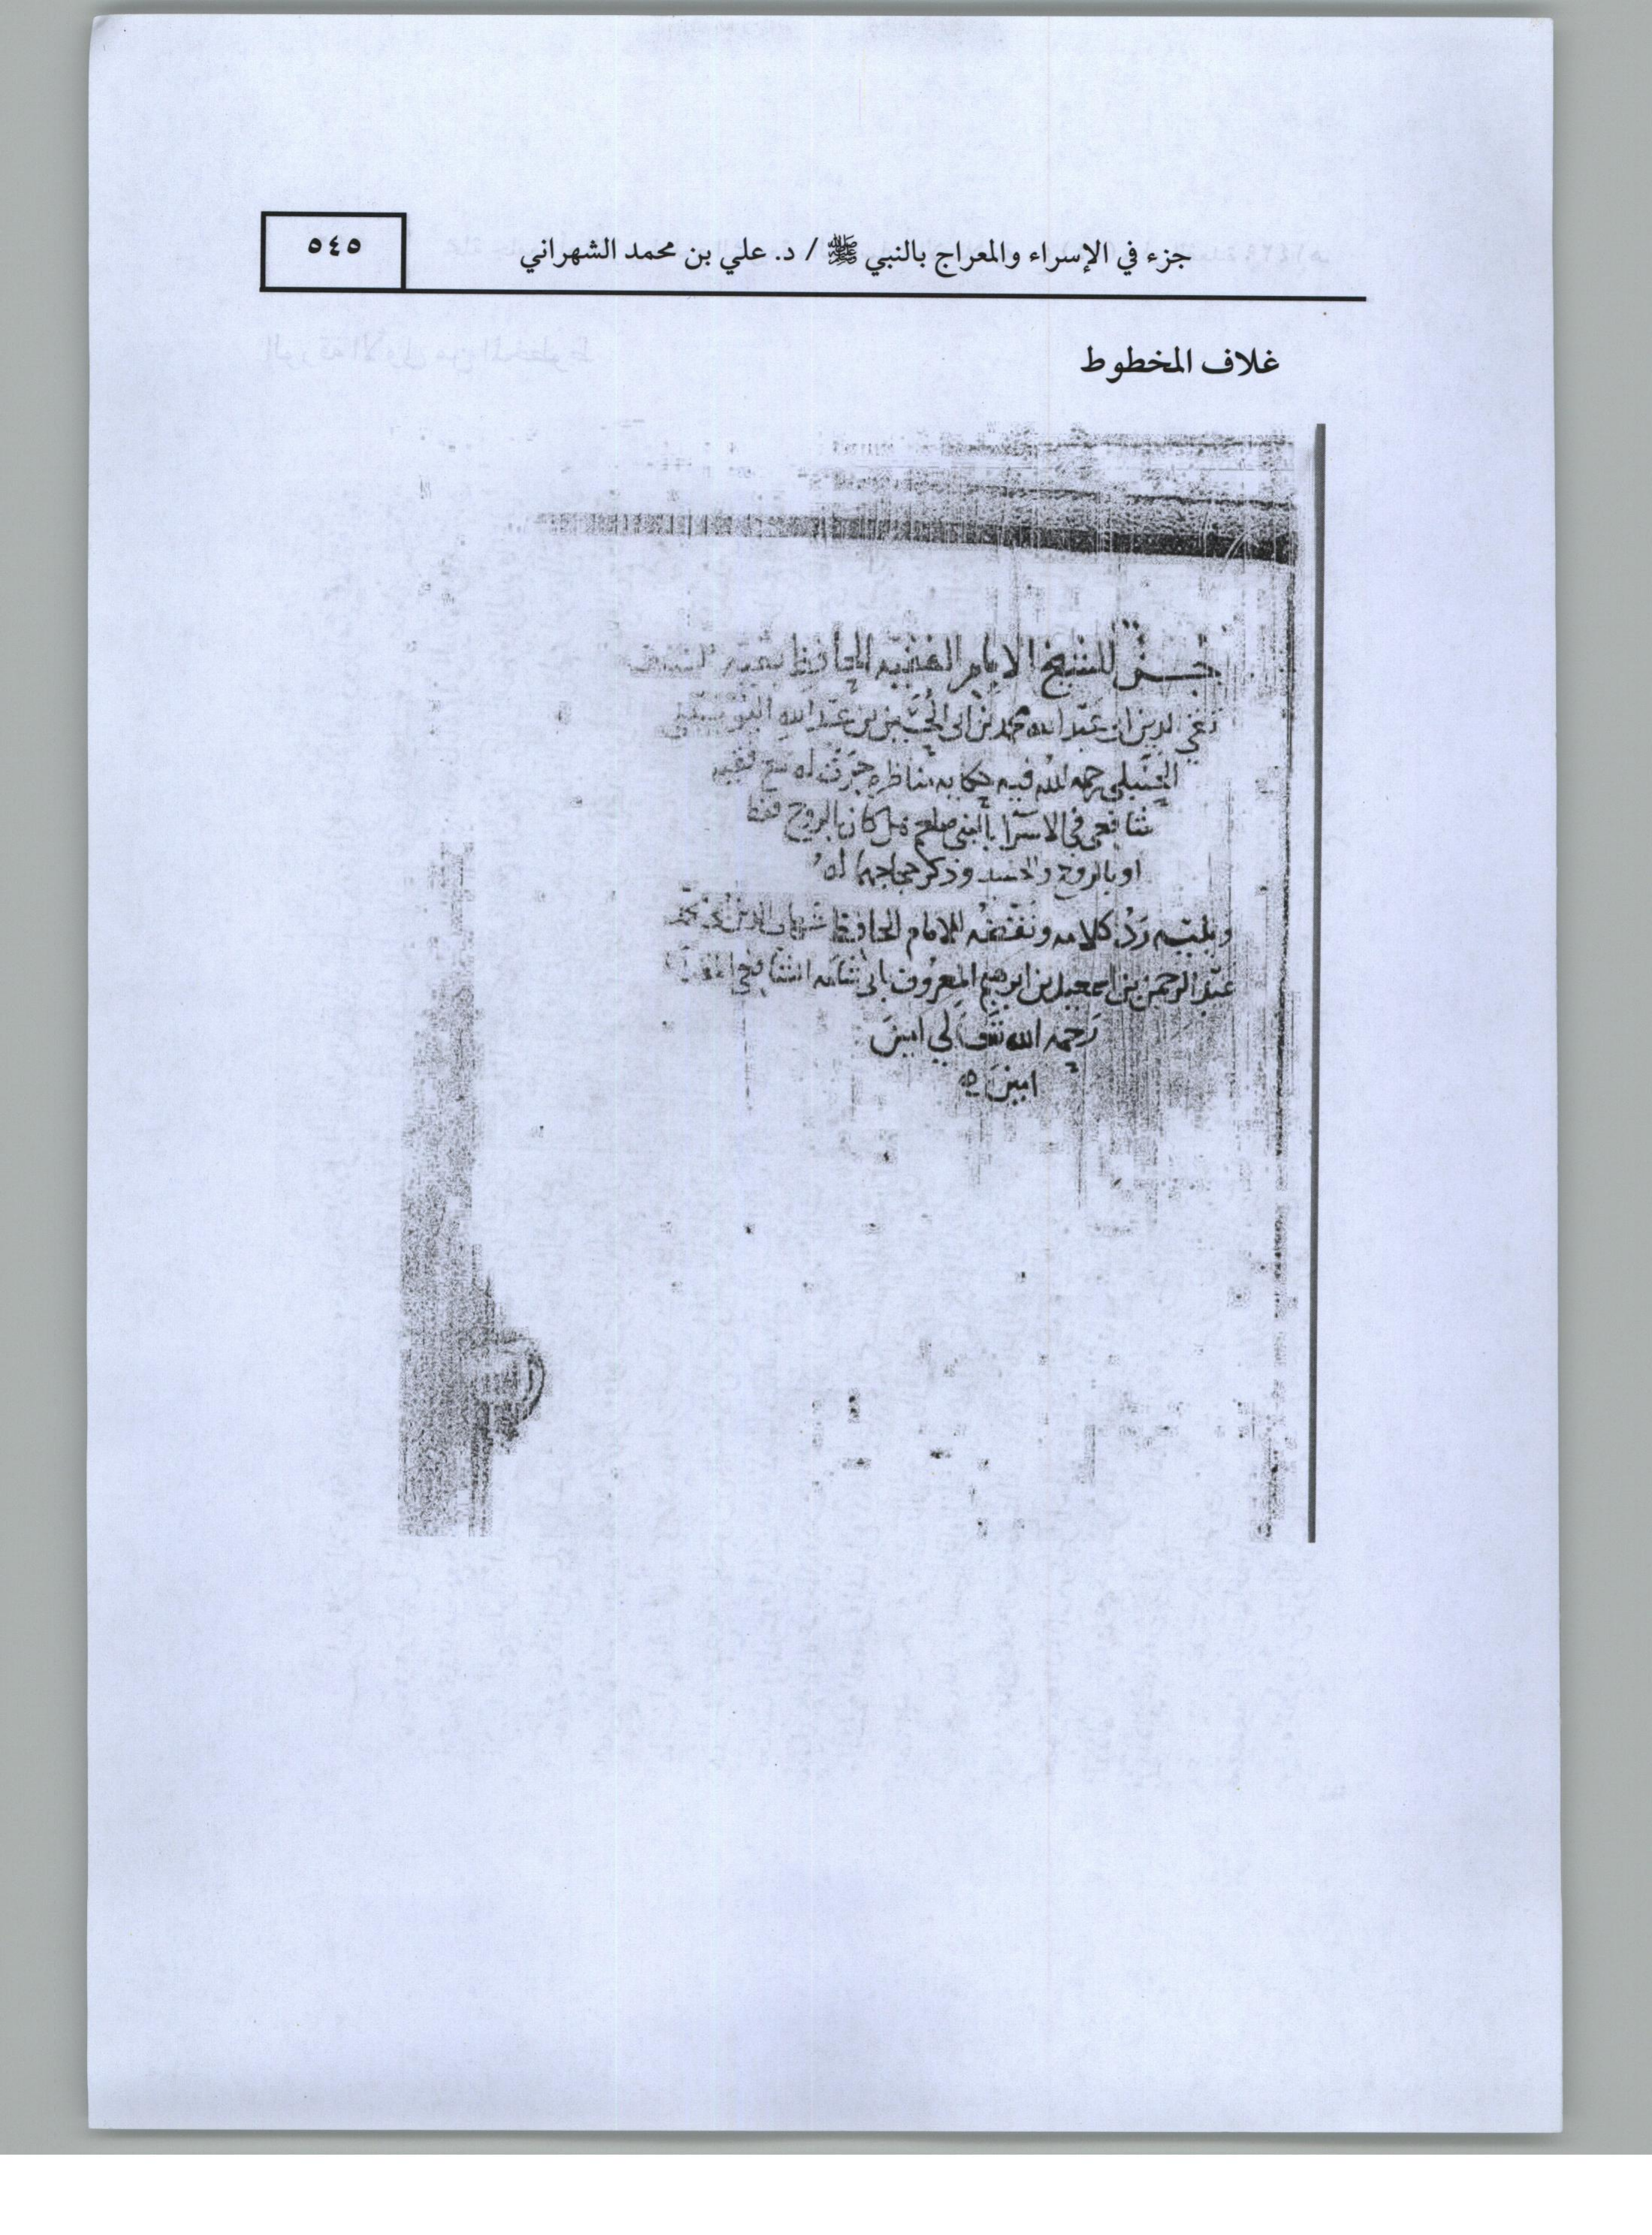 جزء في الإسراء والمعراج بالنبي ﷺ / د. علي بن محمد الشهراني
٥٤٥
غلاف المخطوط
جزء للشيخ الامام الفقيه الحافظ بقية السلف
تقي الدين ابى عبد الله محمد بن ابى الحسين بن عبد الله اليونيني
الحنبلي رحمه الله فيه حكاية مناظرة جرت له مع فقيه
شافعي في الاسرا بالنبي صلعم هل كان بالروح فقط
او بالروح والجسد وذكر حجاجهما له
ويليه رد كلامه ونقضه للامام الحافظ شهاب الدين ابى محمد
عبد الرحمن بن اسمعيل بن ابرهيم المعروف بابى شامه الشافعي
رحمه الله تعالى امين
امين